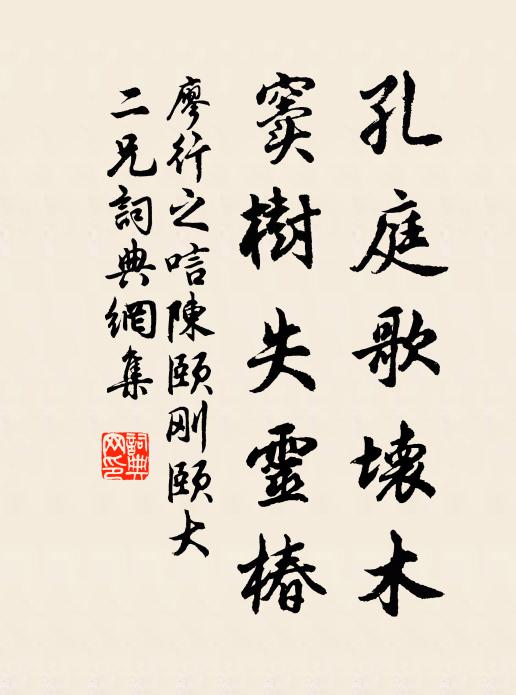 孔庭歌壞木
竇樹失靈椿
廖行之唁陳頤剛頤大
二兄詞典網集
詞典網印